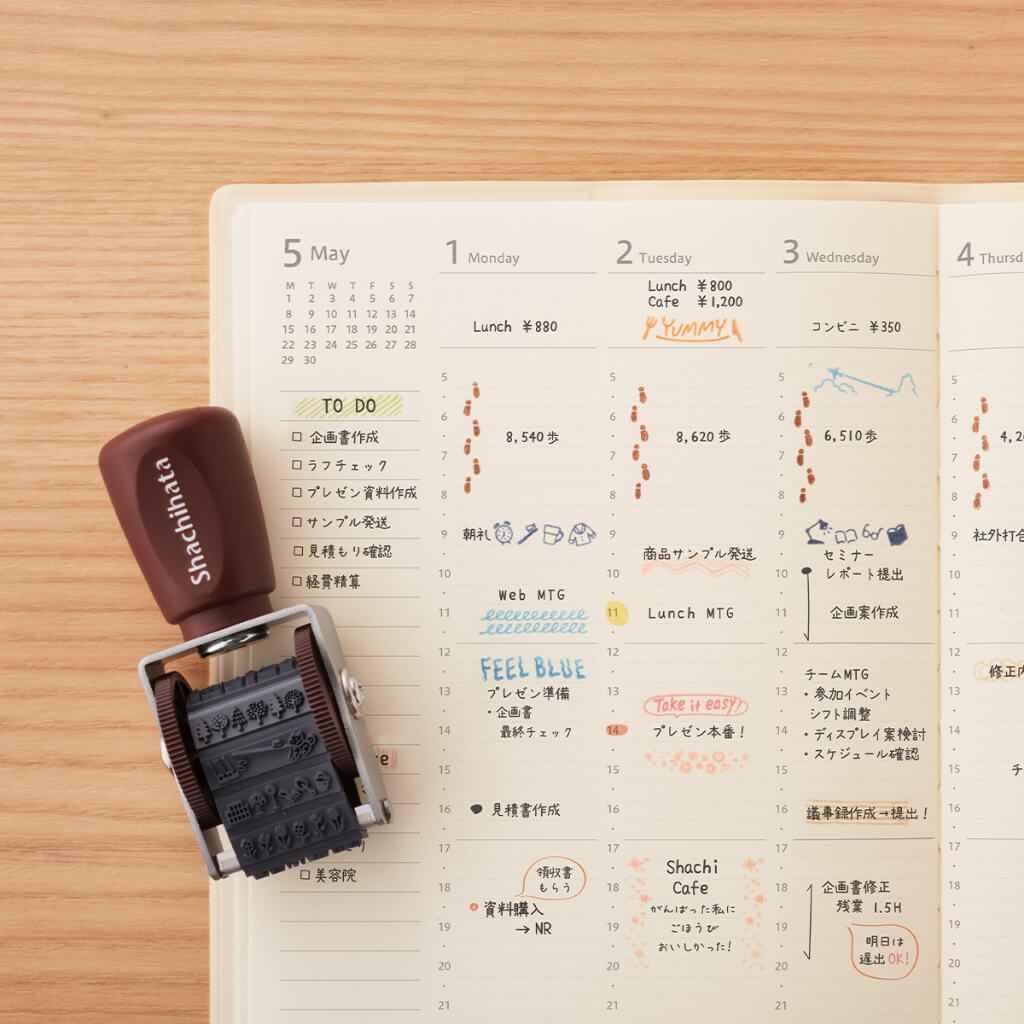 5 May
M T W T F S S
1 2 3 4 5 6 7
8 9 10 11 12 13 14
15 16 17 18 19 20 21
22 23 24 25 26 27 28
29 30
TO DO
企画書作成
ラフチェック
プレゼン資料作成
サンプル発送
見積もり確認
経費精算
美容院
Shachihata
1 Monday
Lunch ¥880
5
6
7
8
9
10
11
12
13
14
15
16
17
18
19
20
21
8,540歩
朝礼
Web MTG
FEEL BLUE
プレゼン準備
・企画書
最終チェック
見積書作成
領収書
もらう
資料購入
→ NR
2 Tuesday
Lunch ¥800
Cafe ¥1,200
YUMMY
5
6
7
8
9
10
11
12
13
14
15
16
17
18
19
20
21
8,620歩
商品サンプル発送
Lunch MTG
Take it easy!
プレゼン本番!
Shachi
Cafe
がんばった私に
ごほうび
おいしかった!
3 Wednesday
コンビニ ¥350
5
6
7
8
9
10
11
12
13
14
15
16
17
18
19
20
21
6,510歩
セミナー
レポート提出
企画案作成
チームMTG
・参加イベント
シフト調整
・ディスプレイ案検討
・スケジュール確認
議事録作成→提出!
企画書修正
残業 1.5H
明日は
遅出OK!
4 Thursd
5
6
7
8
9
10
11
12
13
14
15
16
17
18
19
20
21
4,2
社外打合
修正内